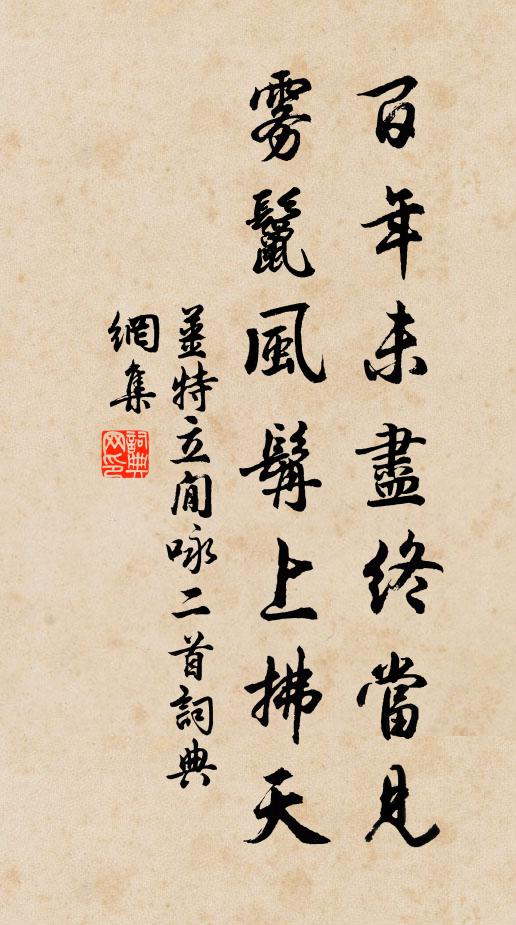 百年未盡終當見
霧鬣風髯上拂天
姜特立閒咏二首詞典
網集
詞典网印